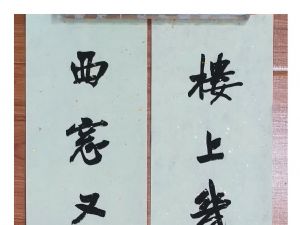 楼上几
西窗又